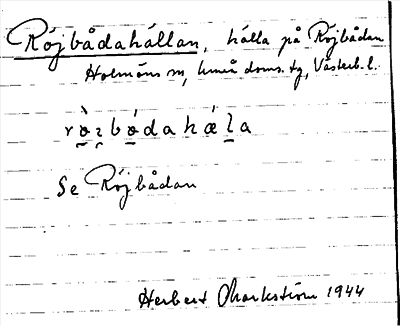 Röjbådahällan, hälla på Röjbådan
Holmöns sn, Umeå doms. tg, Västerb. l.
Se Röjbådan
Herbert Markström 1944